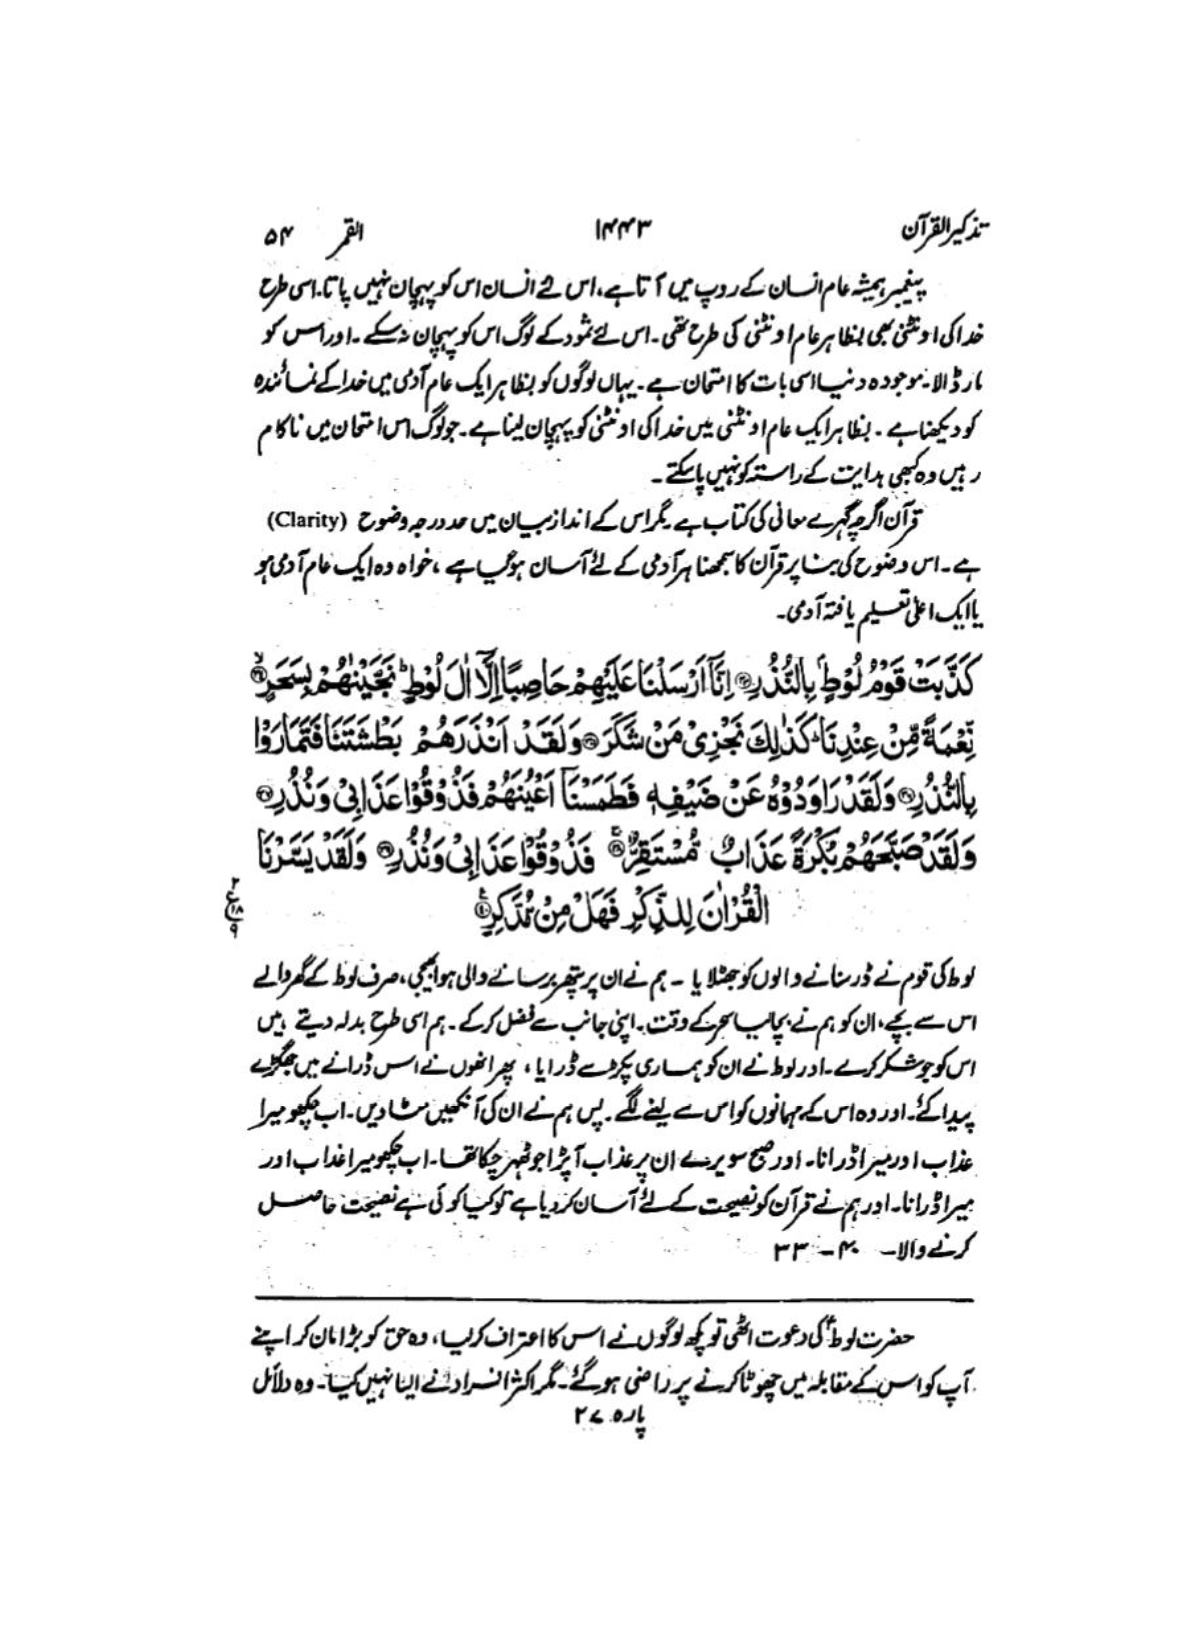 تذکیر القرآن ۱۴۴۳ القمر ۵۴
پیغمبر ہمیشہ عام انسان کے روپ میں آتا ہے، اس لئے انسان اس کو پہچان نہیں پاتا۔ اسی طرح
خدا کی اونٹنی بھی بظاہر عام اونٹنی کی طرح تھی۔ اس لئے ثمود کے لوگ اس کو پہچان نہ سکے۔ اور اس کو
مار ڈالا۔ موجودہ دنیا اسی بات کا امتحان ہے۔ یہاں لوگوں کو بظاہر ایک عام آدمی میں خدا کے نمائندہ
کو دیکھنا ہے۔ بظاہر ایک عام اونٹنی میں خدا کی اونٹنی کو پہچان لینا ہے۔ جو لوگ اس امتحان میں ناکام
رہیں وہ کبھی ہدایت کے راستہ کو نہیں پا سکتے۔
قرآن اگرچہ گہرے معانی کی کتاب ہے مگر اس کے انداز بیان میں حد درجہ وضوح (Clarity)
ہے۔ اس وضوح کی بنا پر قرآن کا سمجھنا ہر آدمی کے لئے آسان ہو گیا ہے، خواہ وہ ایک عام آدمی ہو
یا ایک اعلیٰ تعلیم یافتہ آدمی۔
كَذَّبَتْ قَوْمُ لُوْطٍۭ بِالنُّذُرِ۝۳۳ اِنَّاۤ اَرْسَلْنَا عَلَيْهِمْ حَاصِبًا اِلَّاۤ اٰلَ لُوْطٍ ؕ نَجَّيْنٰهُمْ بِسَحَرٍ۝۳۴ۙ
نِّعْمَةً مِّنْ عِنْدِنَا ؕ كَذٰلِكَ نَجْزِيْ مَنْ شَكَرَ۝۳۵ وَلَقَدْ اَنْذَرَهُمْ بَطْشَتَنَا فَتَمَارَوْا
بِالنُّذُرِ۝۳۶ وَلَقَدْ رَاوَدُوْهُ عَنْ ضَيْفِهٖ فَطَمَسْنَاۤ اَعْيُنَهُمْ فَذُوْقُوْا عَذَابِيْ وَنُذُرِ۝۳۷
وَلَقَدْ صَبَّحَهُمْ بُكْرَةً عَذَابٌ مُّسْتَقِرٌّ۝۳۸ۚ فَذُوْقُوْا عَذَابِيْ وَنُذُرِ۝۳۹ وَلَقَدْ يَسَّرْنَا
الْقُرْاٰنَ لِلذِّكْرِ فَهَلْ مِنْ مُّدَّكِرٍ۝۴۰ۧ
۲
ع
۱۸
۹
لوط کی قوم نے ڈر سنانے والوں کو جھٹلایا ۔ ہم نے ان پر پتھر برسانے والی ہوا بھیجی، صرف لوط کے گھر والے
اس سے بچے، ان کو ہم نے بچا لیا سحر کے وقت۔ اپنی جانب سے فضل کر کے۔ ہم اسی طرح بدلہ دیتے ہیں
اس کو جو شکر کرے۔ اور لوط نے ان کو ہماری پکڑ سے ڈرایا، پھر انھوں نے اس ڈرانے میں جھگڑے
پیدا کئے۔ اور وہ اس کے مہمانوں کو اس سے لینے لگے۔ پس ہم نے ان کی آنکھیں مٹا دیں۔ اب چکھو میرا
عذاب اور میرا ڈرانا۔ اور صبح سویرے ان پر عذاب آ پڑا جو ٹھہر چکا تھا۔ اب چکھو میرا عذاب اور
میرا ڈرانا۔ اور ہم نے قرآن کو نصیحت کے لئے آسان کر دیا ہے تو کیا کوئی ہے نصیحت حاصل
کرنے والا۔ ۴۰ – ۳۳
حضرت لوطؑ کی دعوت اٹھی تو کچھ لوگوں نے اس کا اعتراف کر لیا، وہ حق کو بڑا مان کر اپنے
آپ کو اس کے مقابلہ میں چھوٹا کرنے پر راضی ہو گئے۔ مگر اکثر افراد نے ایسا نہیں کیا۔ وہ دلائل
پارہ ۲۷